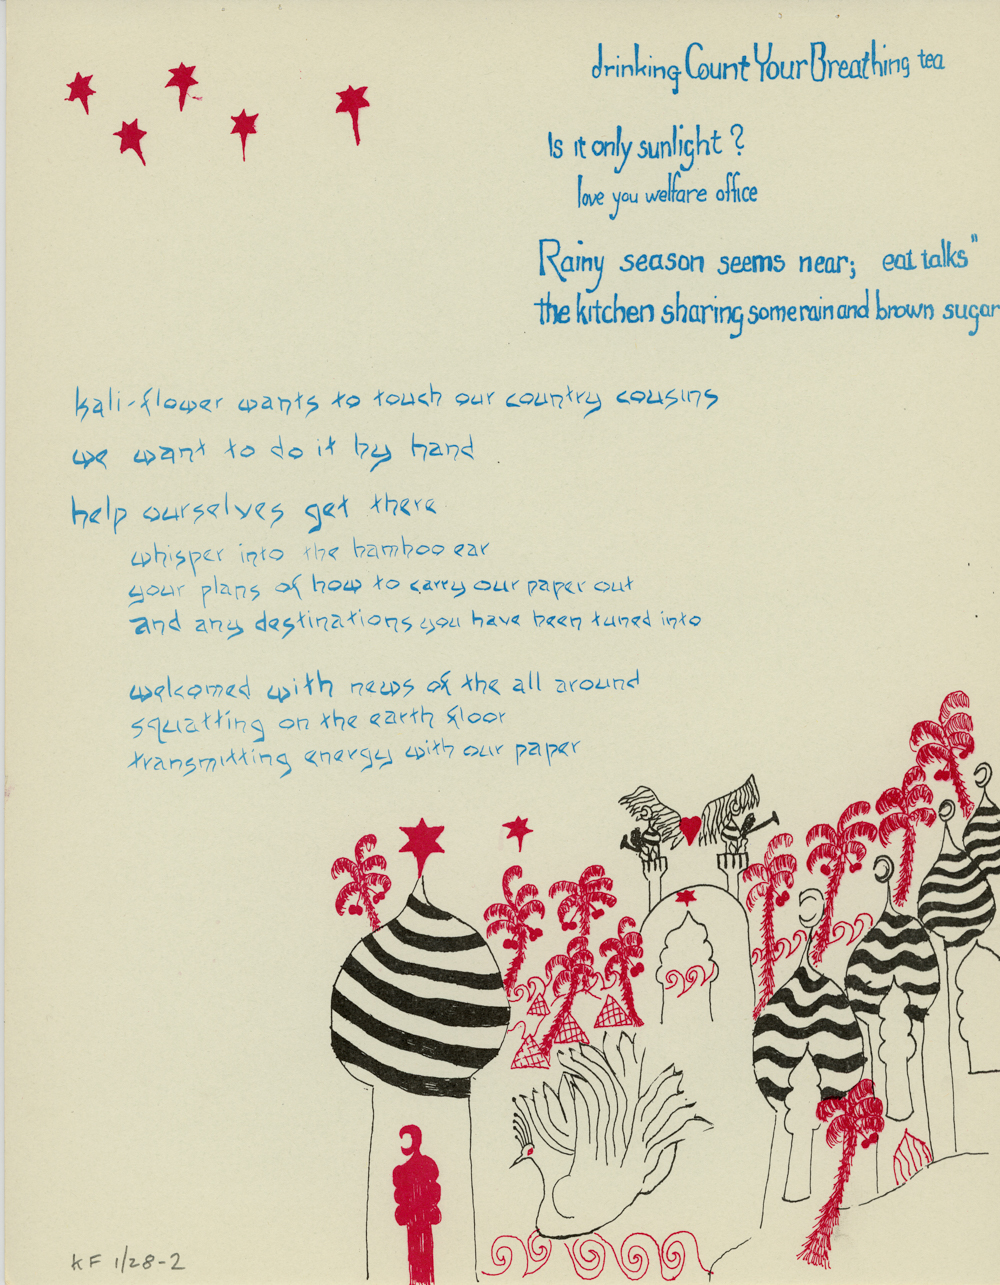 drinking Count Your Breathing tea
Is it only sunlight?
love you welfare office
Rainy season seems near; eat talks"
the kitchen sharing some rain and brown sugar
kali-flower wants to touch our country cousins
we want to do it by hand
help ourselves get there
whisper into the bamboo ear
your plans of how to carry our paper out
and any destinations you have been tuned into
welcomed with news of the all around
squatting on the earth floor
transmitting energy with our paper
KF 1/28-2